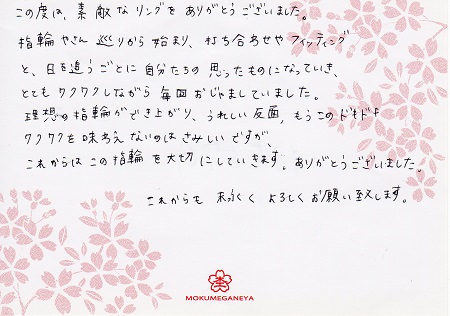 この度は、素敵なリングをありがとうございました。
指輪やさん巡りから始まり、打ち合わせやフィッティング
と、日を追うごとに自分たちの思ったものになっていき、
とてもワクワクしながら毎回おじゃましていました。
理想の指輪ができ上がり、うれしい反面、もうこのドキドキ
ワクワクを味わえないのはさみしいですが、
これからはこの指輪を大切にしていきます。ありがとうございました。
これからも末永くよろしくお願い致します。
MOKUMEGANEYA